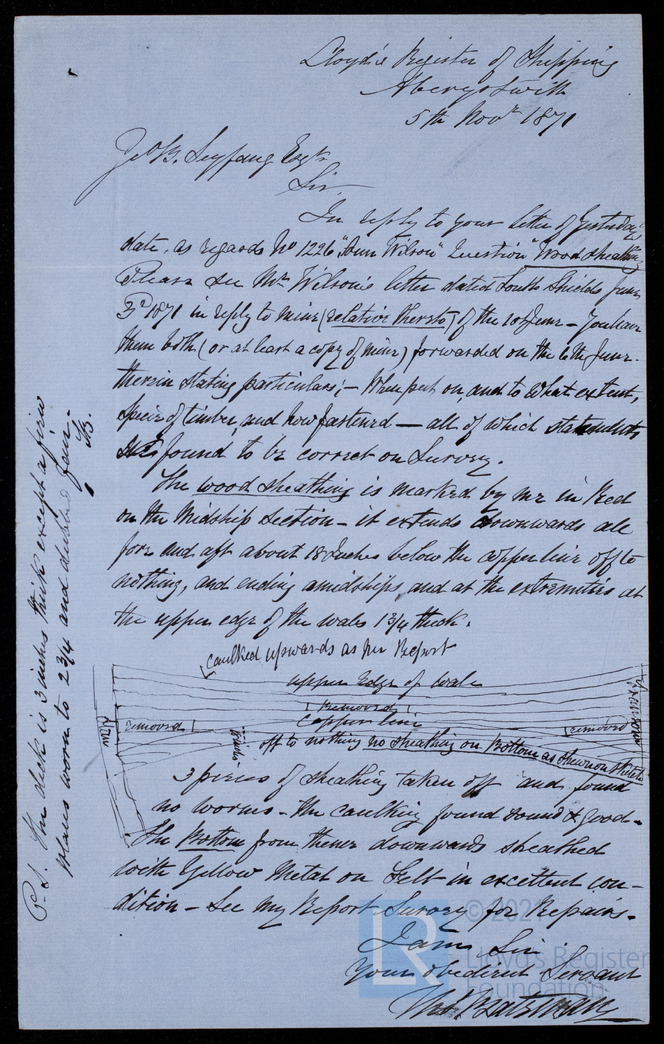 Lloyd's Register of Shipping
Aberystwith
5th Novr 1871
Geo B. Seyfang Esqre
Sir
In reply to your letter of yesterday's
date, as regards No 1226 "Ann Wilson" Question "Wood sheathing"
Please see Mr Wilson's letter dated South Shields June
3rd 1871 in reply to mine (relative thereto) of the June - You have
them both (or at least a copy of mine) forwarded on the 6th June -
therein stating particulars; - When put on and to what extent,
specie of timber, and how fastened - all of which statements
found to be correct on Survey.
The wood sheathing is marked by me in Red
on the Midship Section - it extends downwards all
fore and aft about 18 Inches below the copper line off to
nothing, and ending amidships and at the extremities at
the upper edge of the wales 1 3/4 thick.
caulked upwards as per Report
upper Edge of wale
removed
copper line
removed
removed
off to nothing no sheathing on Bottom as shewn on sketch
3 pieces of sheathing taken off and found
no worms - the caulking found sound & good -
The Bottom from thence downwards sheathed
with Yellow Metal on Felt in excellent con-
dition - See my Report Survey for Repairs -
I am Sir
Your obedient Servant
P.S. The deck is 3 inches thick except a few
planks worn to 2 3/4 and fair -
© 202
LR
Lloyd's Register
Foundation